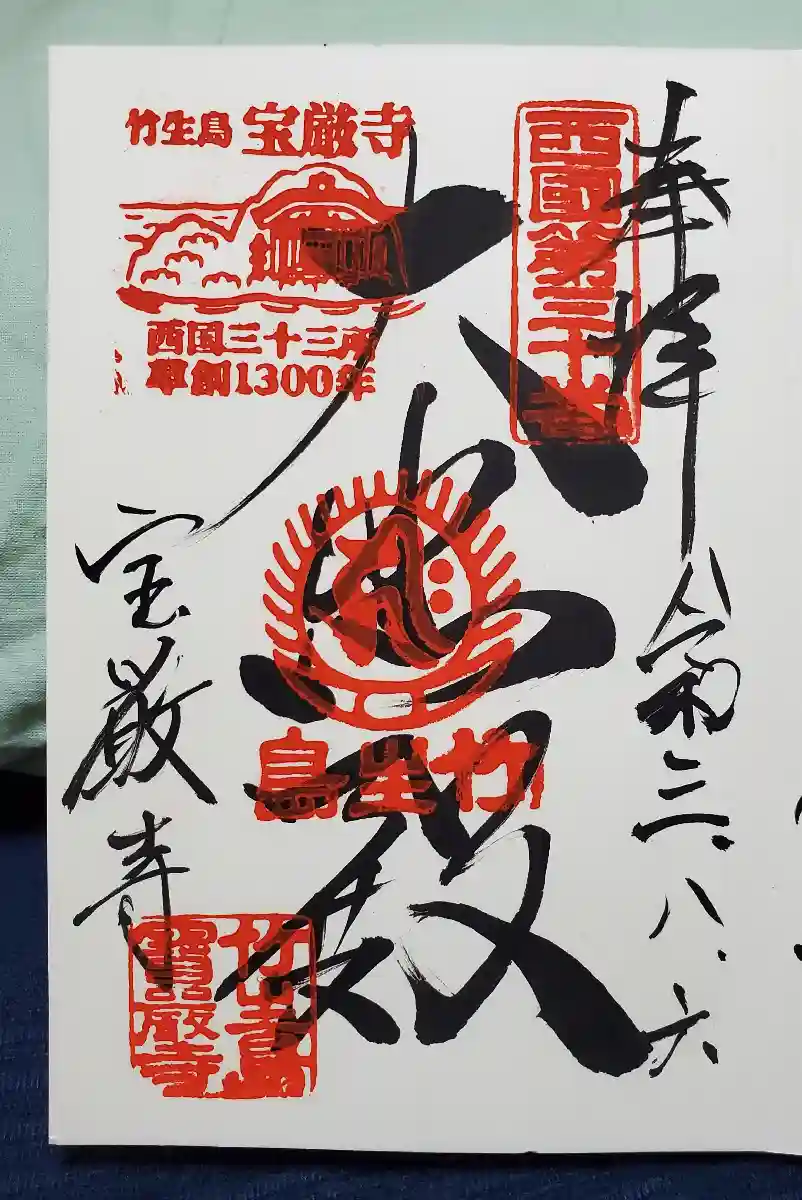 奉拝
令和三.八.六
西國第三十番
大悲殿
竹生島
竹生島 宝厳寺
西国三十三所
草創1300年
宝厳寺
竹生島
寶厳寺